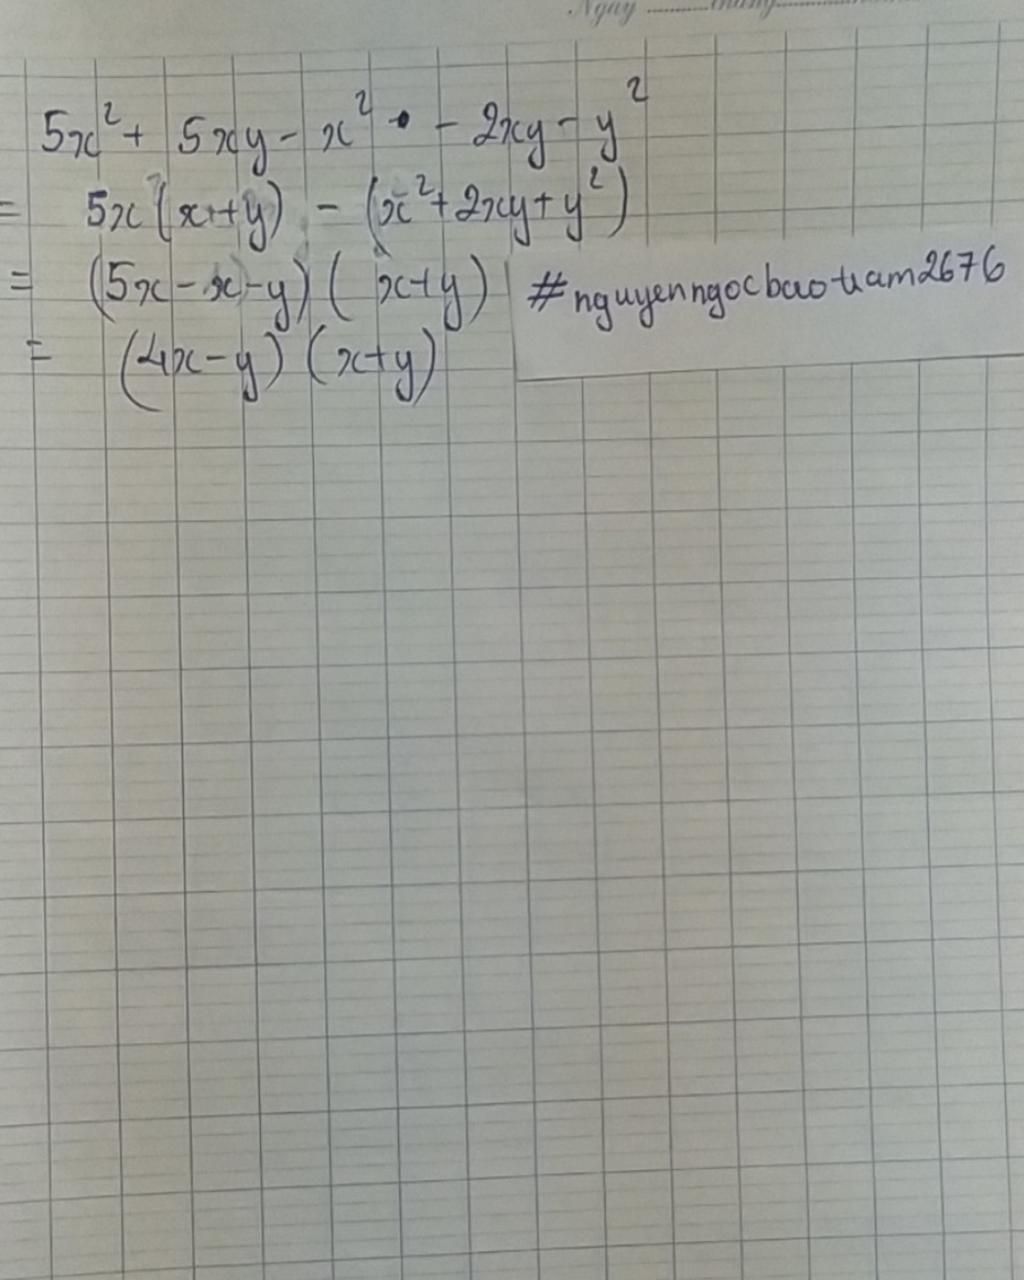 Ngày ........ tháng ........
5x² + 5xy - x² - 2xy - y²
= 5x(x+y) - (x²+2xy+y²)
= (5x-x-y)(x+y)
#nguyenngocbaotram2676
= (4x-y)(x+y)